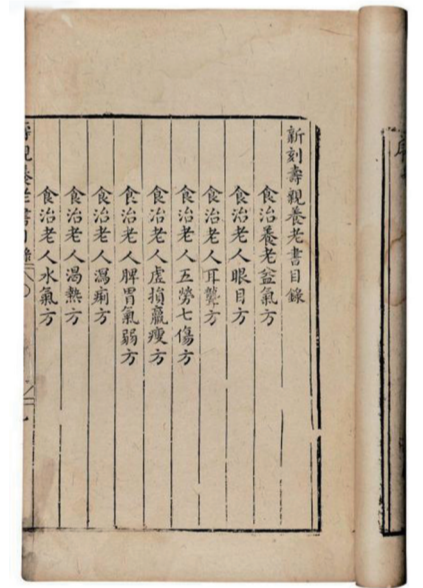 新刻壽親養老書目錄
食治養老益氣方
食治老人眼目方
食治老人耳聾方
食治老人五勞七傷方
食治老人虛損羸瘦方
食治老人脾胃氣弱方
食治老人瀉痢方
食治老人渴熱方
食治老人水氣方
壽親養老書目錄